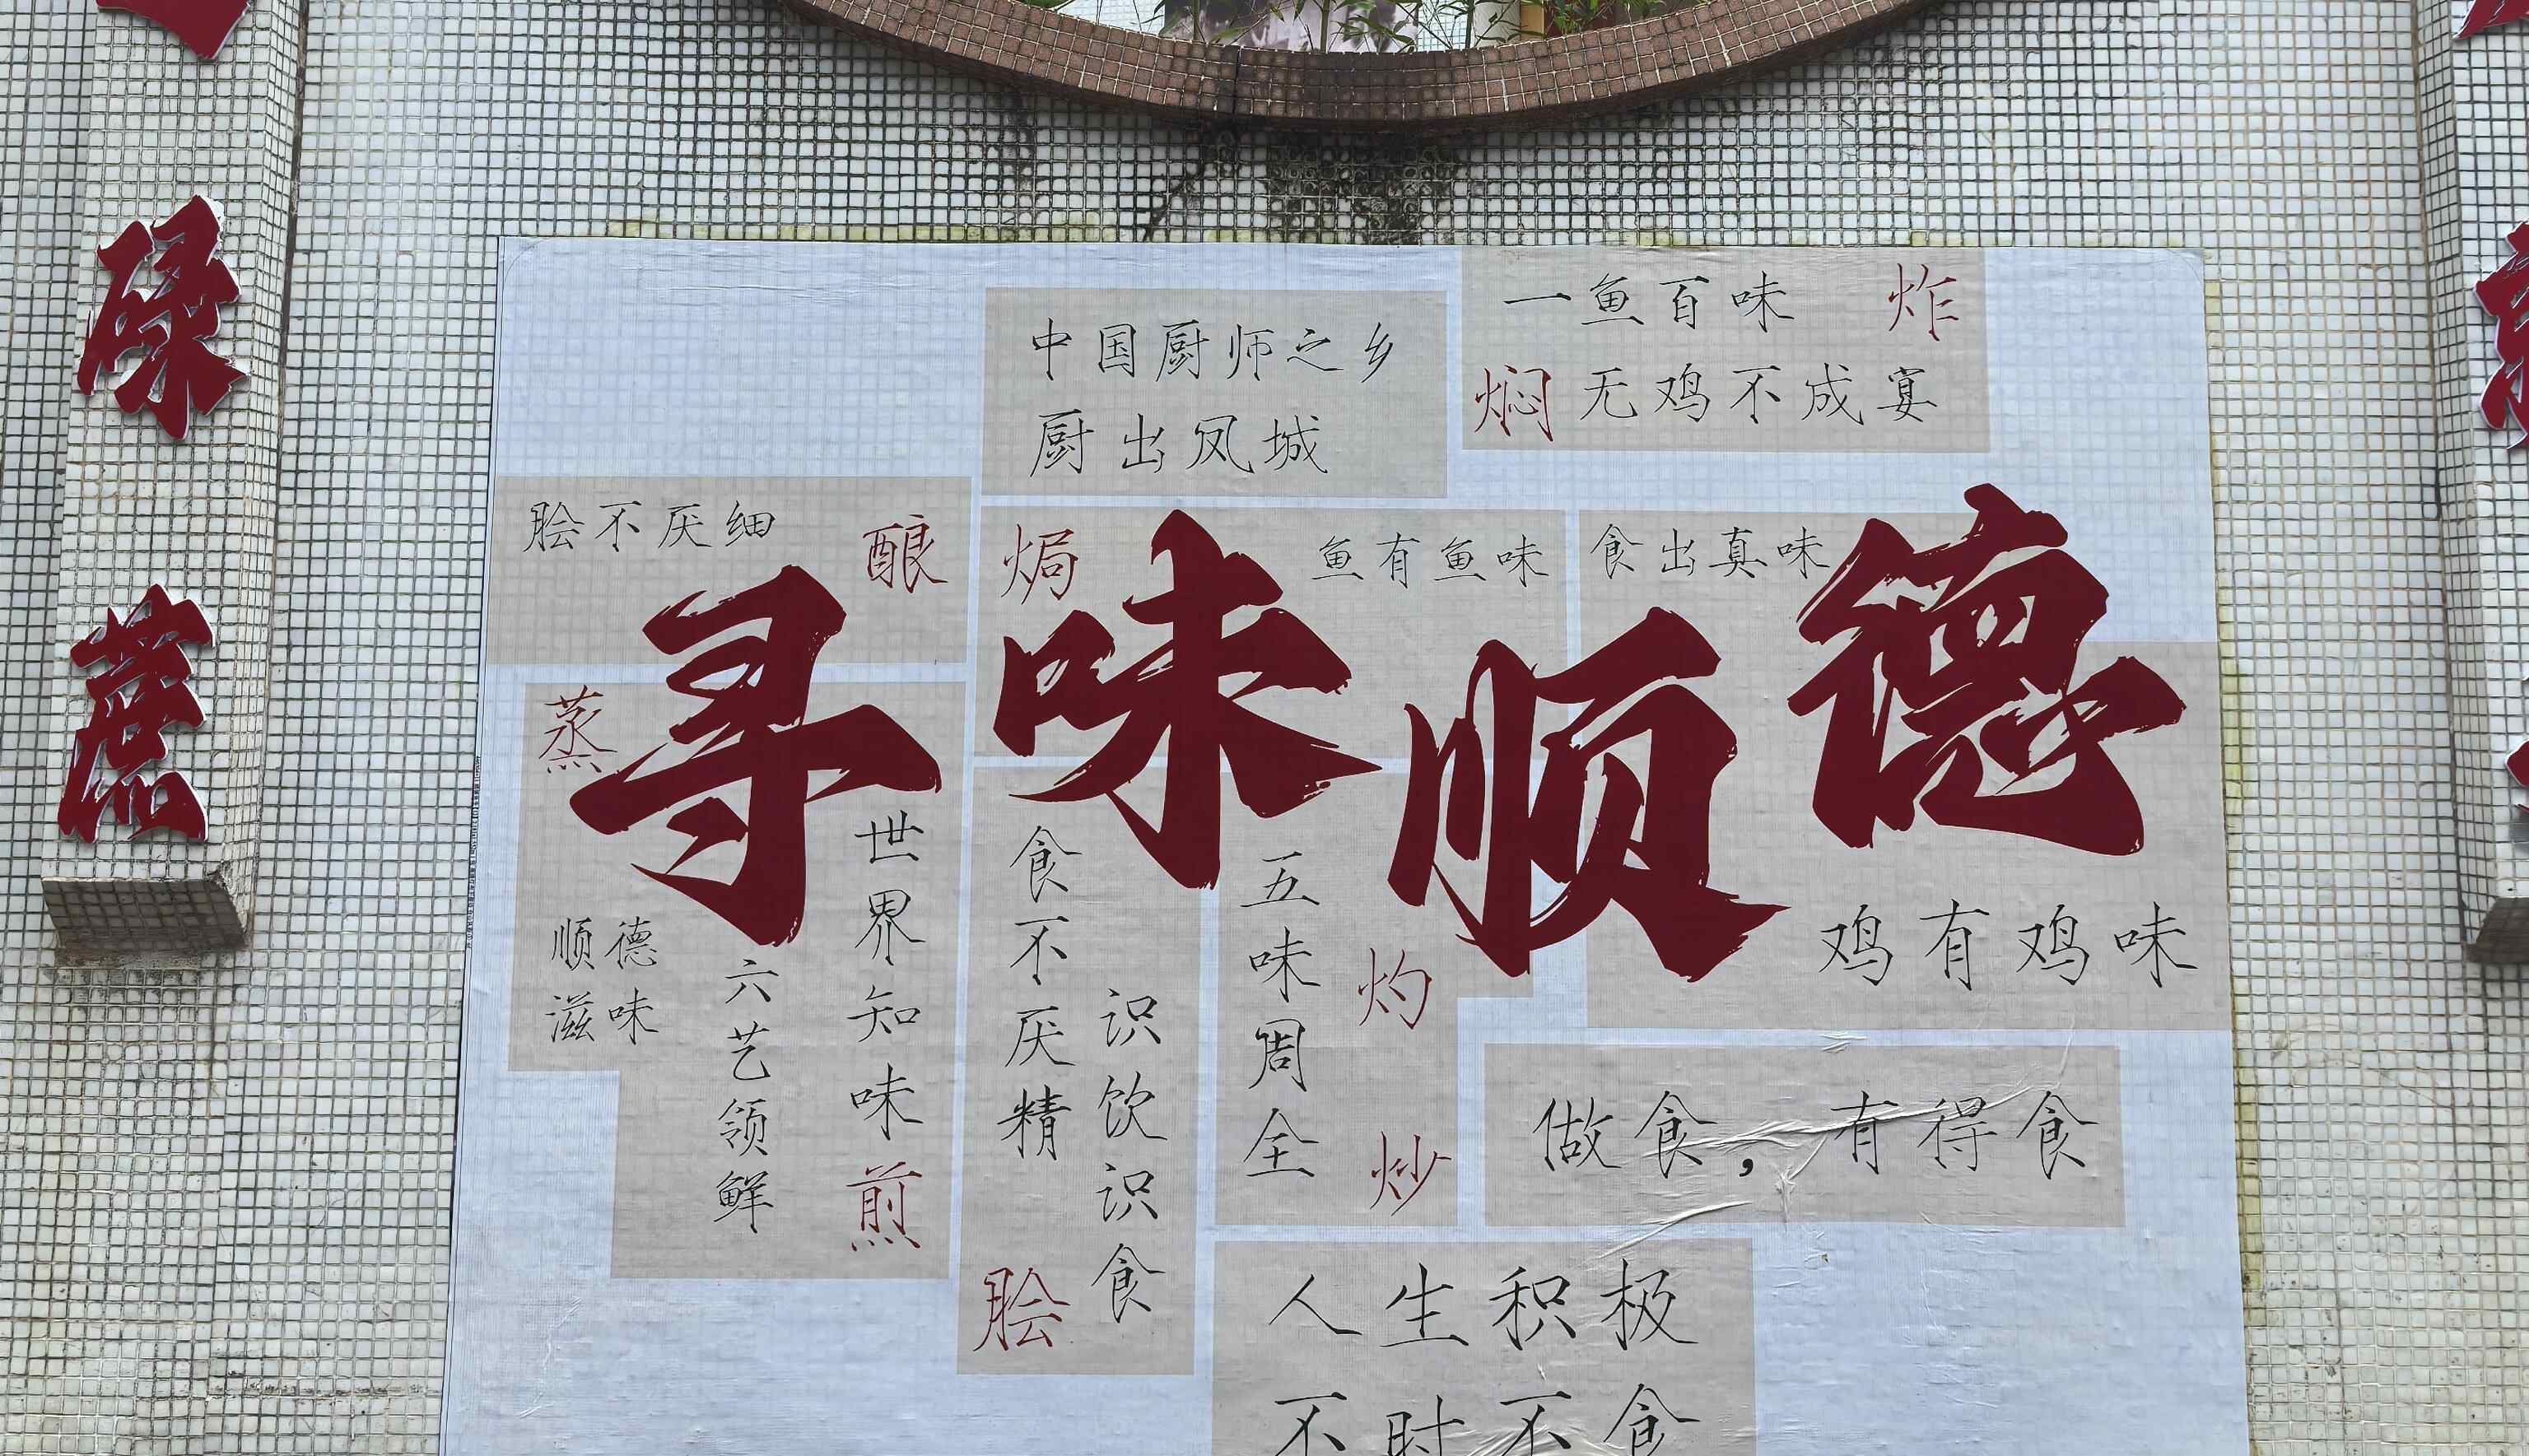 中国厨师之乡
厨出凤城
一鱼百味 炸
焖 无鸡不成宴
脍不厌细 酿
焗 鱼有鱼味
食出真味
寻味顺德
蒸
顺德
滋味
六艺领鲜
世界知味 煎
食不厌精
识饮识食
脍
五味周全
灼
炒
鸡有鸡味
做食，有得食
人生积极
不时不食